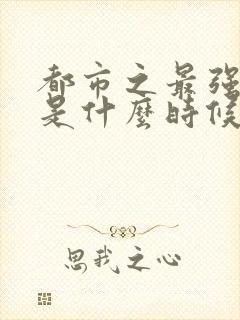 都市之最强
是什麼時候
思我之心